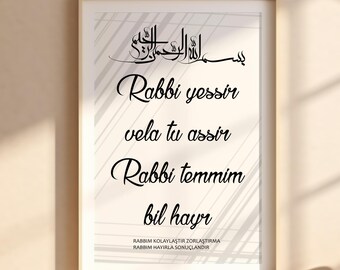 بسم الله الرحمن الرحيم
Rabbi yessir
vela tu assir
Rabbi temmim
bil hayr
RABBIM KOLAYLAŞTIR ZORLAŞTIRMA
RABBIM HAYIRLA SONUÇLANDIR